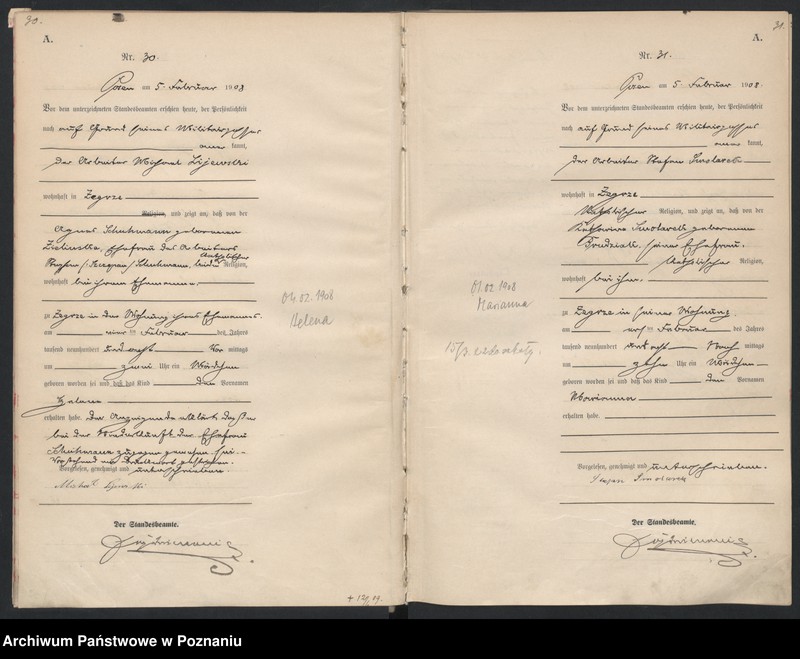 30.
A.
Nr. 30.
Posen am 5. Februar 1908
Vor dem unterzeichneten Standesbeamten erschien heute, der Persönlichkeit
nach auf Grund seines Militairpasses
kannt,
der Arbeiter Michael Lijewski
wohnhaft in Zegrze
Religion, und zeigt an, daß von der
Agnes Schukmann geborenen
Zielinska, Ehefrau des Arbeiters
Stephan /:Szczepan:/ Schukmann, beide katholischer Religion,
wohnhaft bei ihrem Ehemanne,
zu Zegrze in der Wohnung ihres Ehemannes,
am Februar des Jahres
tausend neunhundert und acht Vor mittags
um zwei Uhr ein Mädchen
geboren worden sei und daß das Kind den Vornamen
Helena
erhalten habe. Der Anzeigende erklärt, daß er
bei der Niederkunft der Ehefrau
Schukmann zugegen gewesen sei.
Vorstehend ein Druckwort gestrichen.
Vorgelesen, genehmigt und unterschrieben.
Michał Lijewski
Der Standesbeamte.
04.02.1908
Helena
31.
A.
Nr. 31.
Posen am 5. Februar 1908.
Vor dem unterzeichneten Standesbeamten erschien heute, der Persönlichkeit
nach auf Grund seines Militairpasses
kannt,
der Arbeiter Stefan Smolarek
wohnhaft in Zegrze
katholischer Religion, und zeigt an, daß von der
Katharina Smolarek geborenen
seiner Ehefrau,
katholischer Religion,
wohnhaft bei ihm,
zu Zegrze in seiner Wohnung
am Februar des Jahres
tausend neunhundert und acht Nach mittags
um zehn Uhr ein Mädchen
geboren worden sei und daß das Kind den Vornamen
Marianna
erhalten habe.
Vorgelesen, genehmigt und unterschrieben.
Stefan Smolarek
Der Standesbeamte.
01.02.1908
Marianna
Archiwum Państwowe w Poznaniu